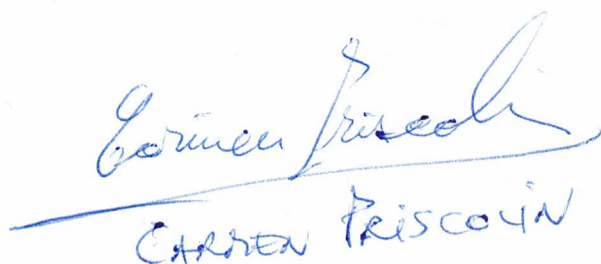 Carmen Priscolin
CARMEN PRISCOLIN